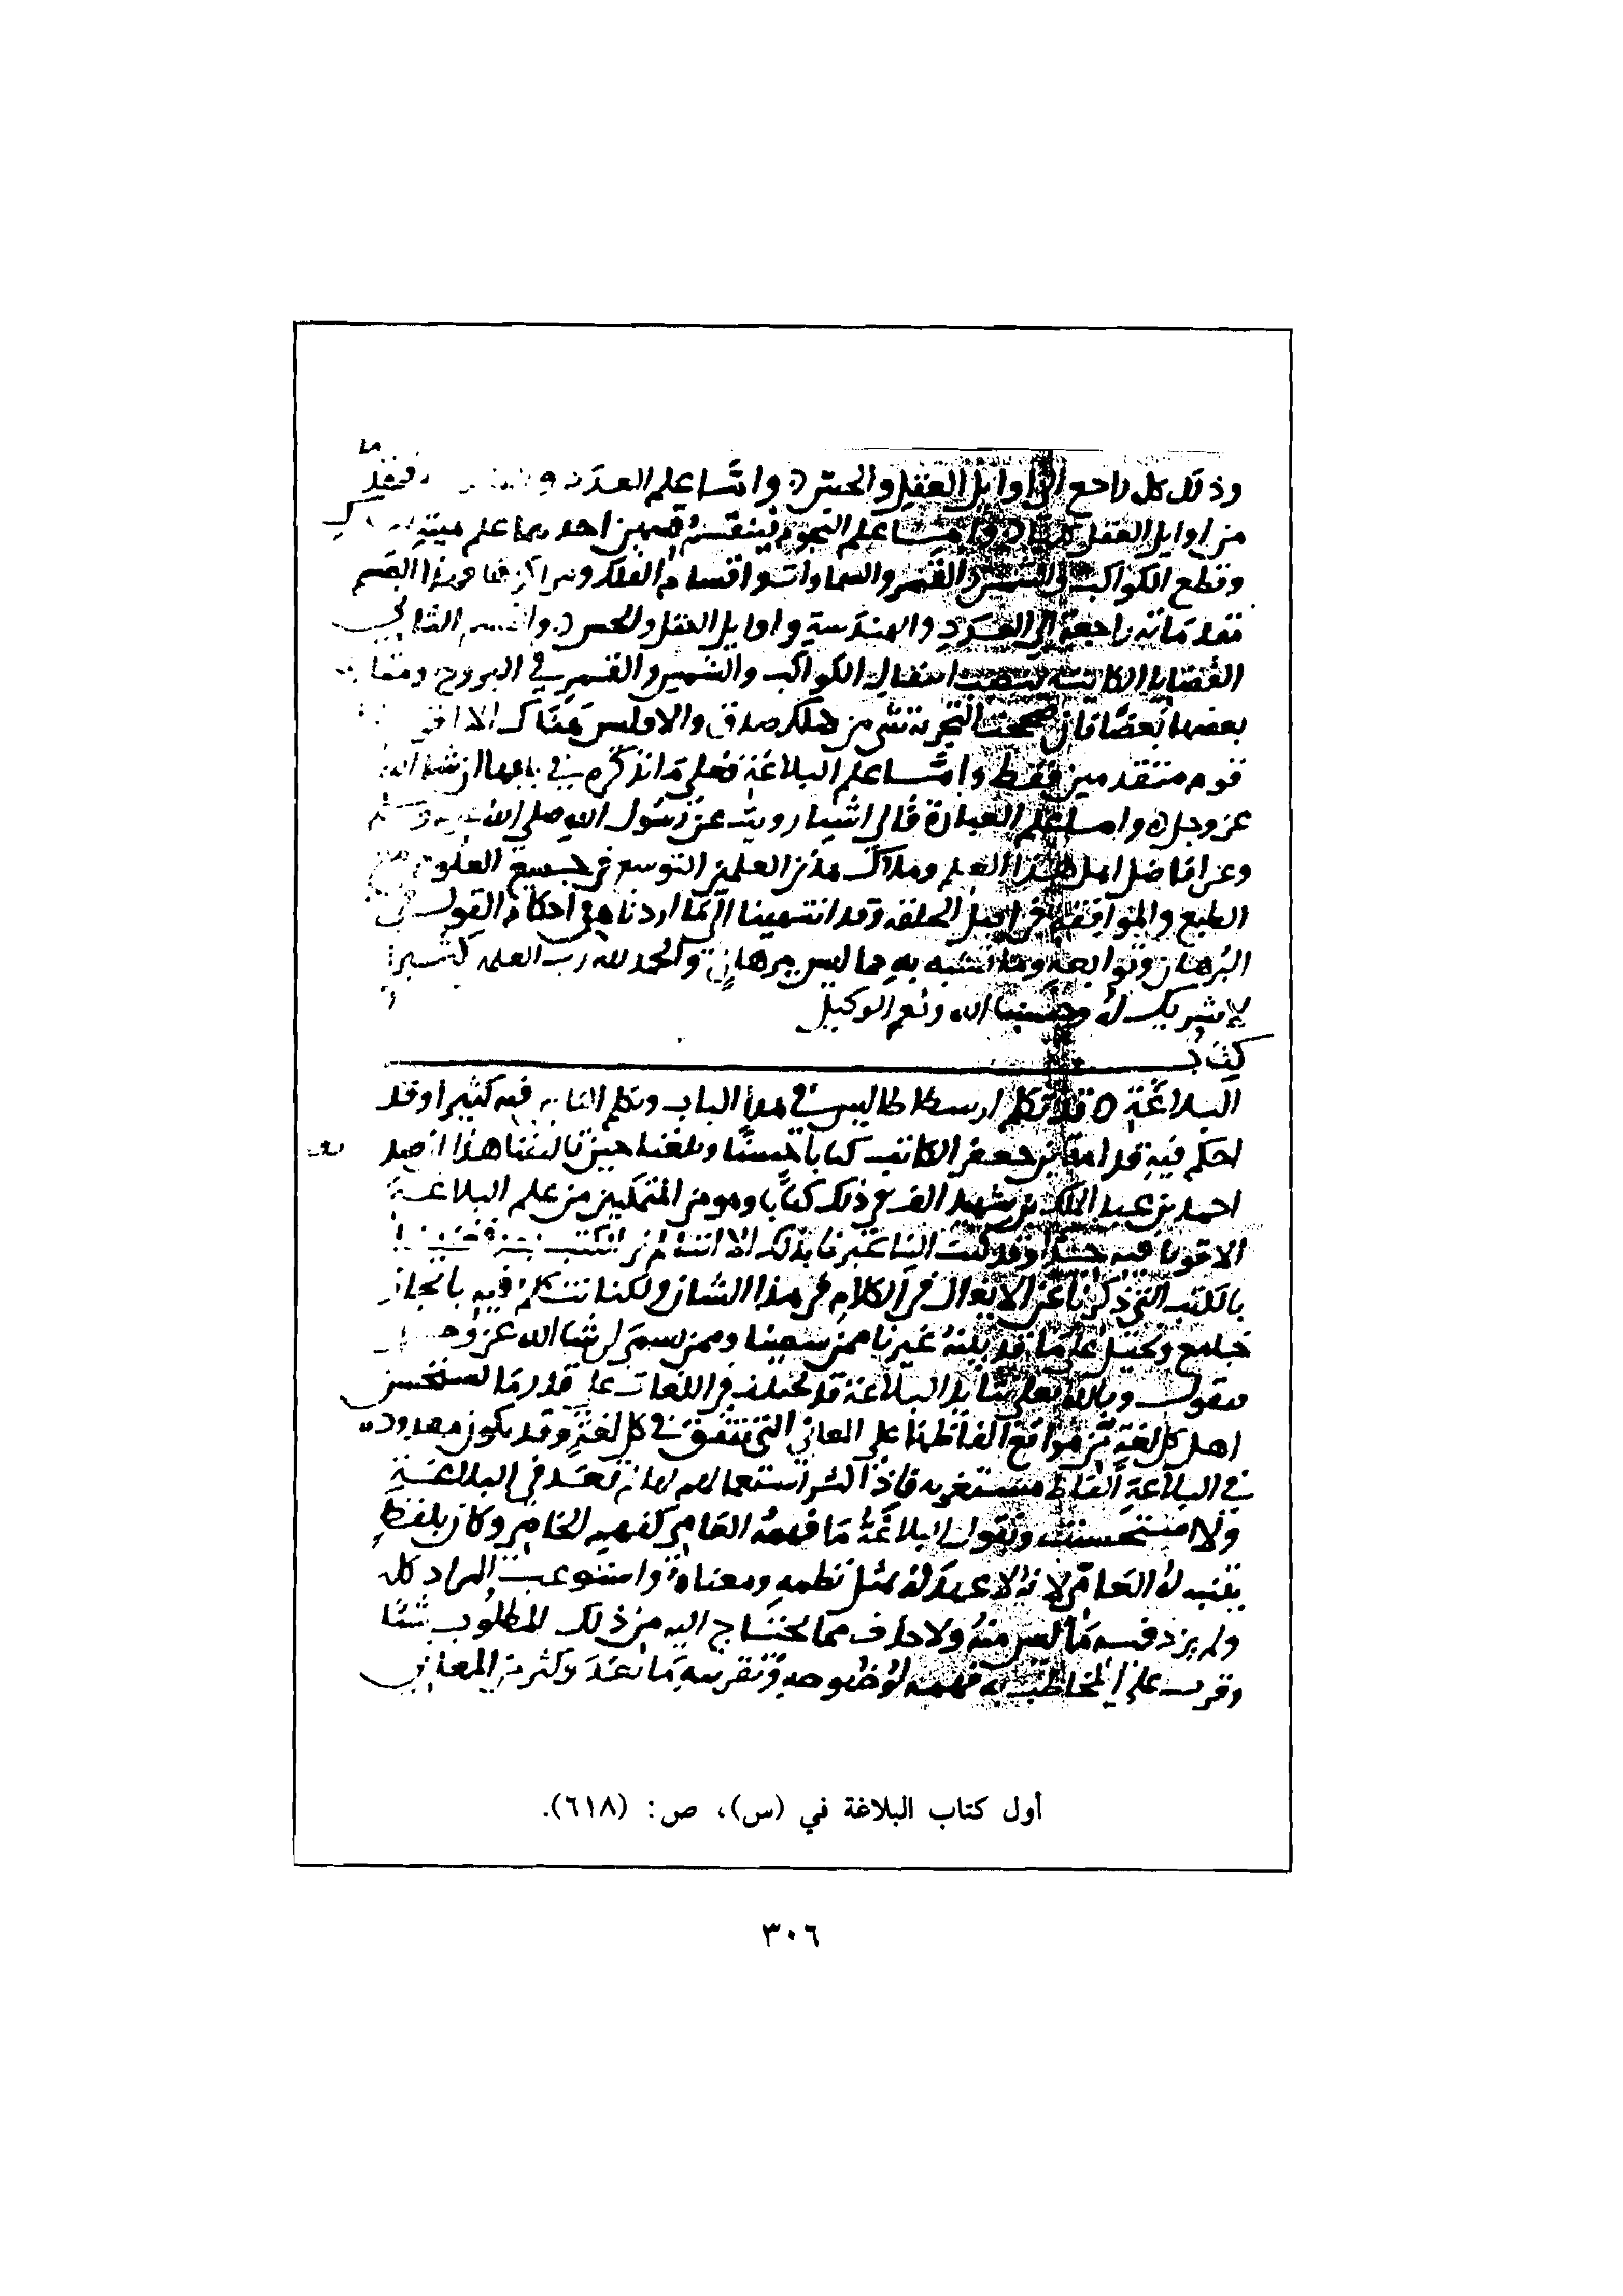 وذلك كل راجع الى اوايل العقل والحس واما علم العدد
من اوايل العقل واما علم النجوم فينقسم قسمين احدهما علم هيئة
وقطع الكواكب والشمس والقمر والسماوات واقسام الفلك ومراكزها وهذا القسم
مقدماته راجعة الى العدد والهندسة واوايل العقل والحس والقسم الثاني
القضايا الكائنة بنصب انتقال الكواكب والشمس والقمر في البروج ومقابلة
بعضها بعضا فان صححت التجربة شي من ذلك صدق والا فليس هناك الا
قوم متقدمين فقط واما علم البلاغة فعلى ما نذكره في بابها ان شا الله
عز وجل واما علم العبارة فالى اشيا رويت عن رسول الله صلى الله عليه وسلم
وعن افاضل اهل هذا العلم وملاك هذين العلمين التوسع في جميع العلوم
الطبع والموافقة في اصل الخلقة وقد انتهينا الى ما اردنا من احكام القول في
البرهان وتوابعه وما تشبه به مما ليس برهان والحمد لله رب العلمين كثيرا
لا شريك له وحسبنا الله ونعم الوكيل
كتاب
البلاغة قد تكلم ارسطاطاليس في هذا الباب وتكلم الناس فيه كثيرا وقد
احكم فيه قدامة بن جعفر الكاتب كتابا حسنا وبلغنا حين تاليفنا هذا ان
احمد بن عبد الملك بن شهيد الف في ذلك كتابا وهو من المتمكنين من علم البلاغة
الاقويا فيه جدا وقد كتب الينا يخبرنا بذلك الا اننا لم نر الكتب بعد
بالكتب التي ذكرنا عن الايغال في الكلام في هذا الشان ولكنا نتكلم فيه بايجاز
جامع ونحيل على ما قد بينه غيرنا ممن سمينا وممن نسمي ان شا الله عز وجل
فنقول وبالله تعالى نتايد البلاغة قد تختلف في اللغات على قدر ما يستحسن
اهل كل لغة من مواقع الفاظها على المعاني التي تتفق في كل لغة وقد يكون معدودة
في البلاغة الفاظ مستغربة فاذا كثر استعمالهم لها لم تعد في البلاغة
ولا استحسنت ونقول البلاغة ما فهمه العامي كفهم الخاصي وكان بلفظ
يتنبه له العامي لانه لا عهد له بمثل نظمه ومعناه واستوعب المراد كله
ولم يزد فيه ما ليس منه ولا حذف مما يحتاج اليه من ذلك المطلوب شيئا
وقرب على المخاطب به فهمه لوضوحه وتقريبه ما بعد وكثر من المعاني
أول كتاب البلاغة في (س)، ص: (٦١٨).
٣٠٦